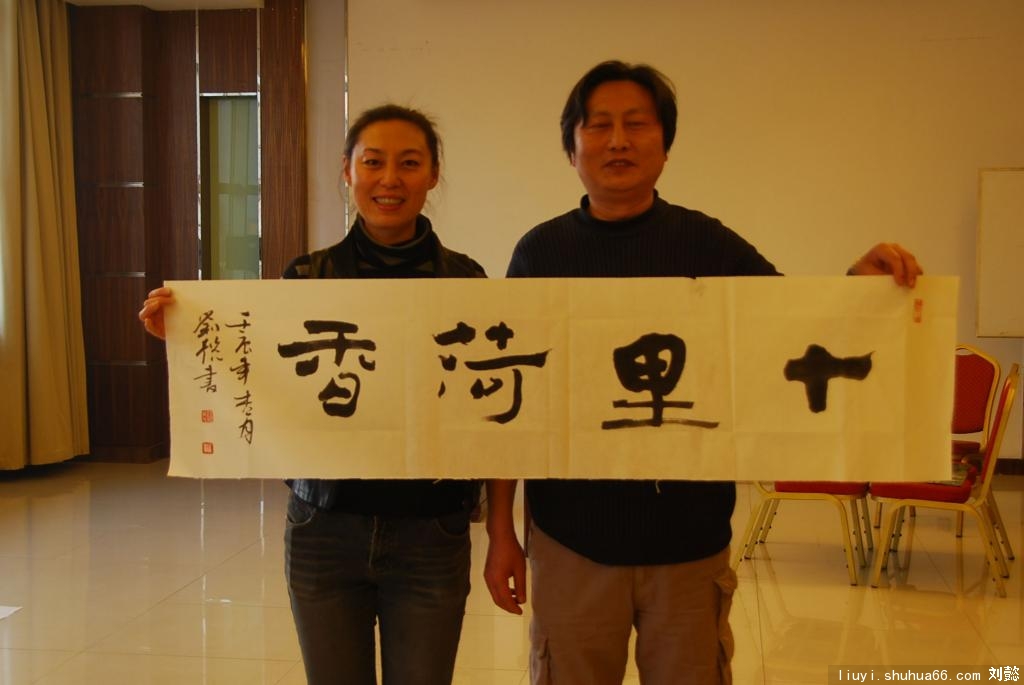 十里荷香
壬辰年春月
刘懿书
liuyi.shuhua66.com 刘懿